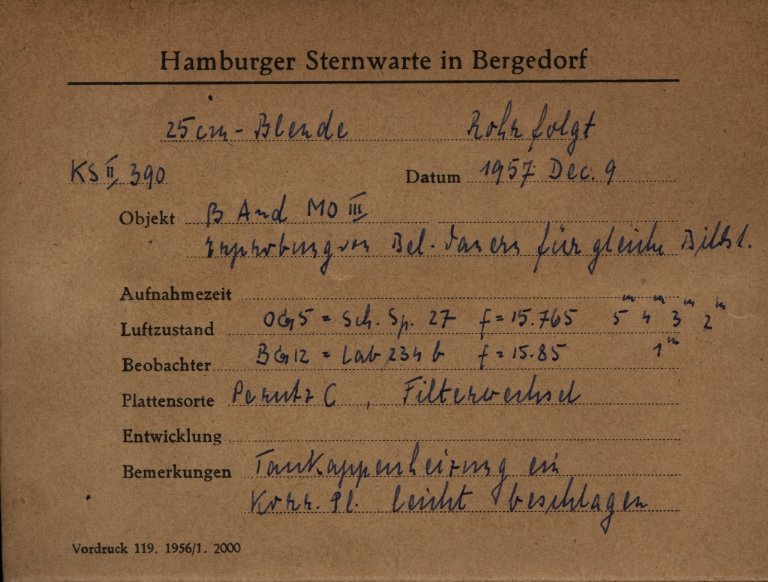 Hamburger Sternwarte in Bergedorf
25cm-Blende Rohr folgt
KS II, 390 Datum 1957 Dec. 9
Objekt B And MO III
Erprobung von Bel. dauern für gleiche Bilds1.
Aufnahmezeit
Luftzustand OG5 = Sch. Sp. 27 f = 15.765 5m 4m 3m 2m
Beobachter BG12 = Lab 234 b f = 15.85 1m
Plattensorte Perutz C, Filterwechsel
Entwicklung
Bemerkungen Taukappenheizung ein
Korr. Pl. leicht beschlagen
Vordruck 119. 1956/1. 2000